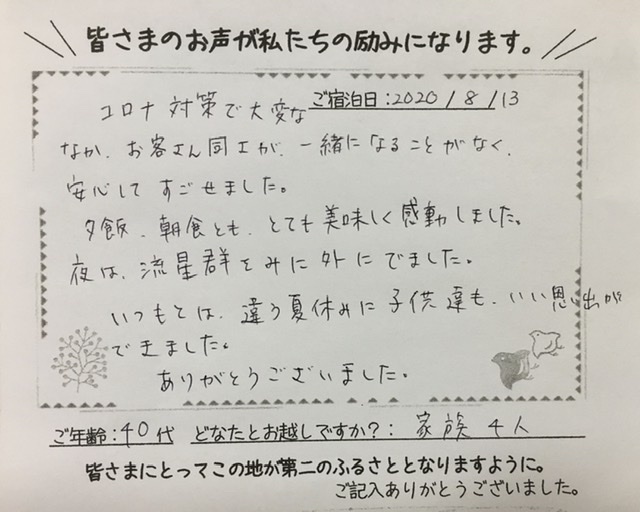 皆さまのお声が私たちの励みになります。
ご宿泊日:2020/8/13
コロナ対策で大変な
なか、お客さん同士が、一緒になることがなく、
安心してすごせました。
夕飯、朝食とも、とても美味しく感動しました。
夜は、流星群をみに外にでました。
いつもとは、違う夏休みに子供達も、いい思い出が
できました。
ありがとうございました。
ご年齢:40代 どなたとお越しですか?: 家族 4人
皆さまにとってこの地が第二のふるさととなりますように。
ご記入ありがとうございました。